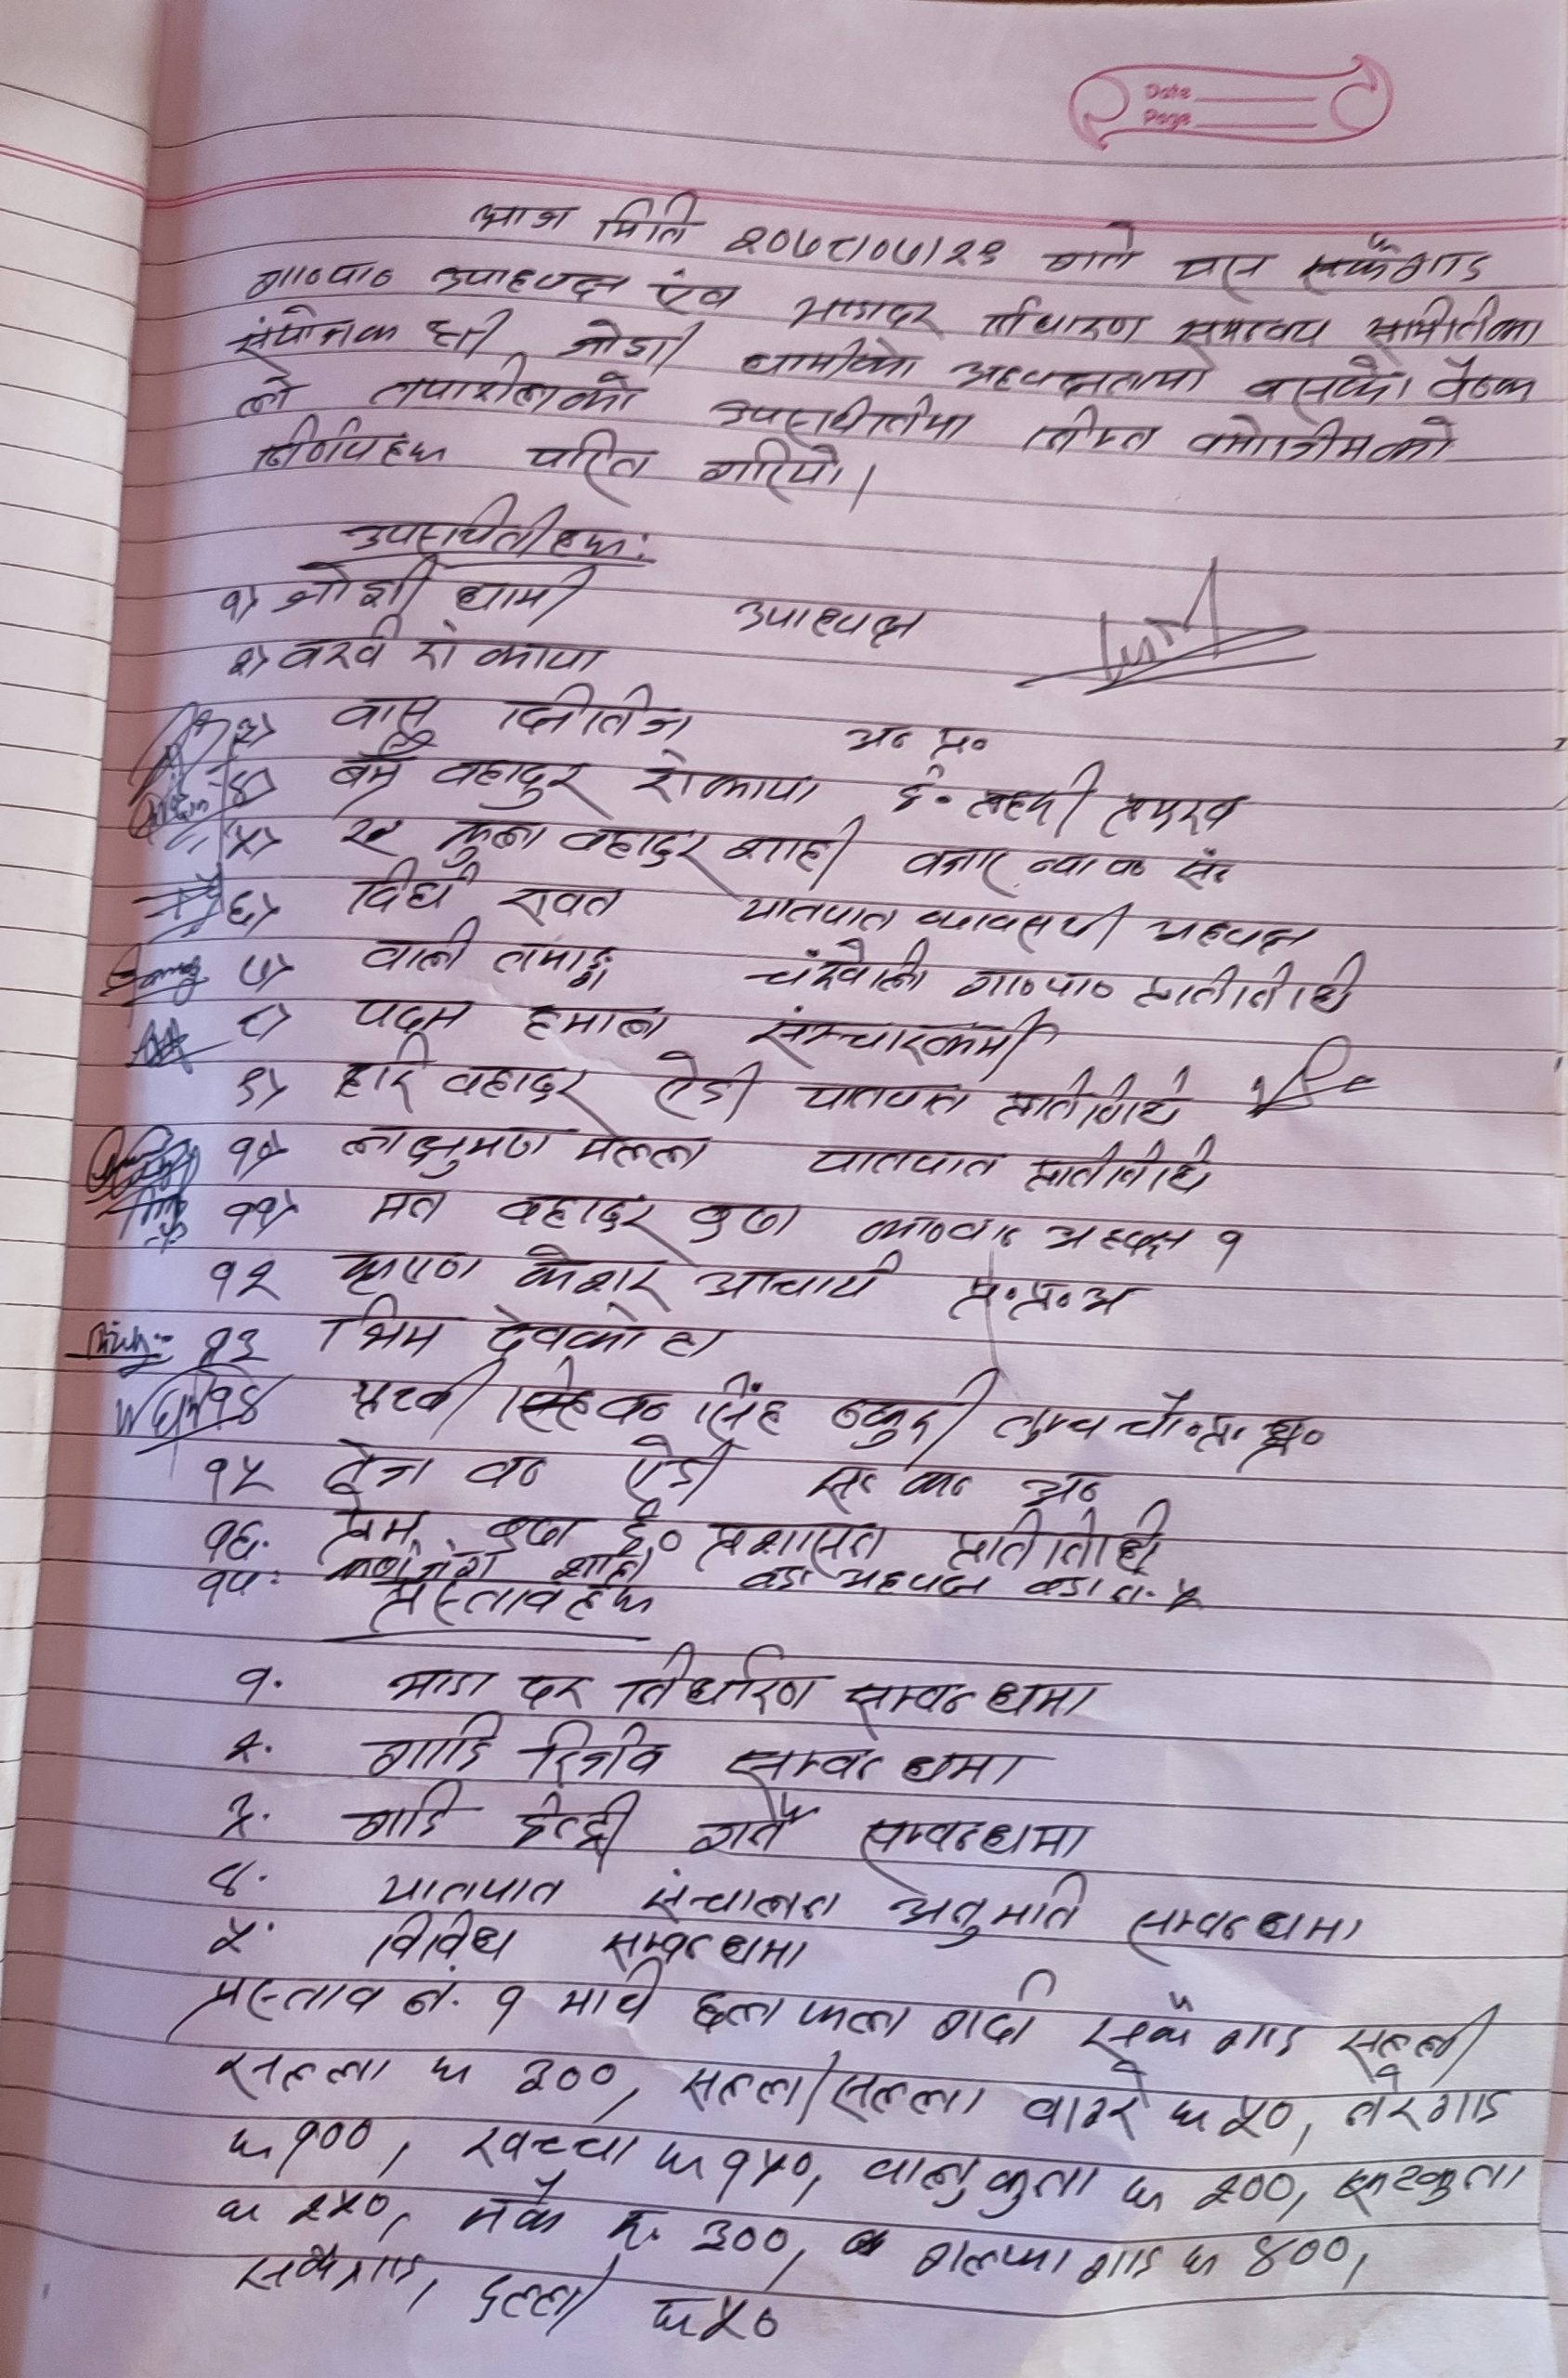 Date
Page
आज मिति २०७८/०७/२९ गते यस सर्केगाड
गा०पा० उपाध्यक्ष एंव भाडादर निर्धारण समन्वय समितिका
संयोजक श्री जोशी धामीको अध्यक्षतामा वसेको वैठक
ले तपाशिलको उपस्थितिमा निम्न वमोजीमको
निर्णयहरू पारित गरियो।
उपस्थितीहरू:
१) जोशी धामी उपाध्यक्ष
२) वखी रोकाया
३) वासु क्षितिज अ० प्र०
४) बम वहादुर रोकाया ई० प्रहरी प्रमुख
५) मुना वहादुर शाही वजार व्या०
६) विर्ष रावत यातयात व्यावसयी अध्यक्ष
७) वाली तमाङ्ग चंखेली गा०पा० प्रतिनिधि
८) पदम हमाल संन्चारकर्मी
९) हरि वहादर ऐडी यातयात प्रतिनिधि
१०) लक्षुमण मल्ल यातयात प्रतिनिधि
११) मन वहादर वुढा का०वा० अध्यक्ष १
१२ कृष्ण केशर आचार्य प्र०प्र०अ
१३ भिम देवकोटा
१४ व० सिंह ठकुरी
१५ तेज व० ऐडी
१६. प्रेम वुढा ई० प्रशासन प्रतिनिधि
१७. शाही वडा अध्यक्ष वडा नं. ५
प्रस्तावहरू
१. भाडा दर निर्धारण सम्वन्धमा
२. गाडि रिजव सम्वन्धमा
३. गाडि ईन्ट्री गर्ने सम्वन्धमा
४. यातयात संचालन अनुमति सम्वन्धमा
५. विविध सम्वन्धमा
प्रस्ताव नं. १ माथि छलफल गर्दा सर्केगाड सल्ली
सल्ला रू ३००, सल्ला/सल्ला वागरे रू ५०, तेरगाड
रू १००, खच्चा रू १५०, वालुकुना रू २००,
रू २५०, रू. ३०० गल्फागाड रू ४००,
सर्केगाड, रू ५०